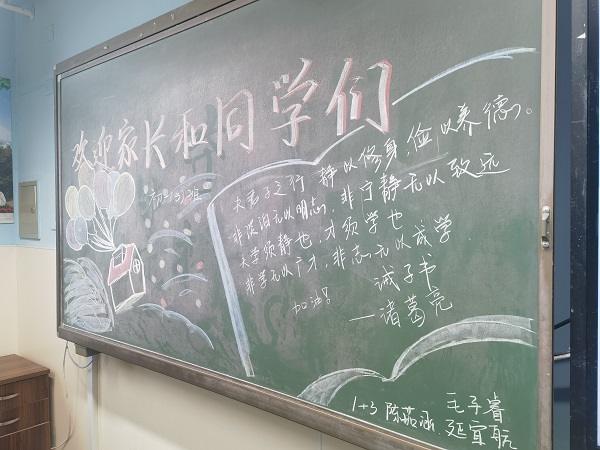 欢迎家长和同学们
初一(3)班
夫君子之行 静以修身,俭以养德。
非淡泊无以明志,非宁静无以致远
夫学须静也,才须学也
非学无以广才,非志无以成学
诫子书
—诸葛亮
加油!
1+3 陈茹涵 毛子睿
延宜航